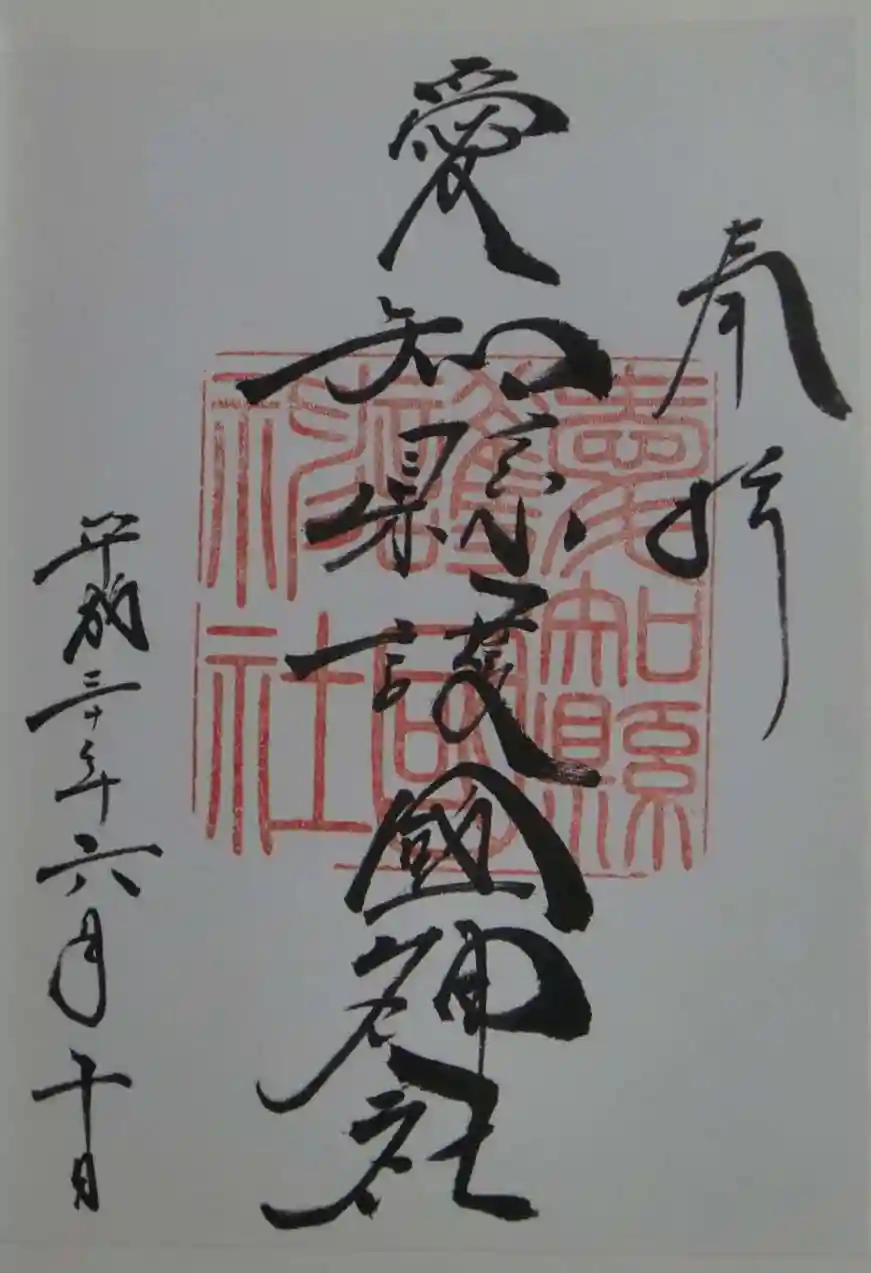 奉拝
愛知縣護國神社
愛知縣
護國
神社
平成三十年六月十日